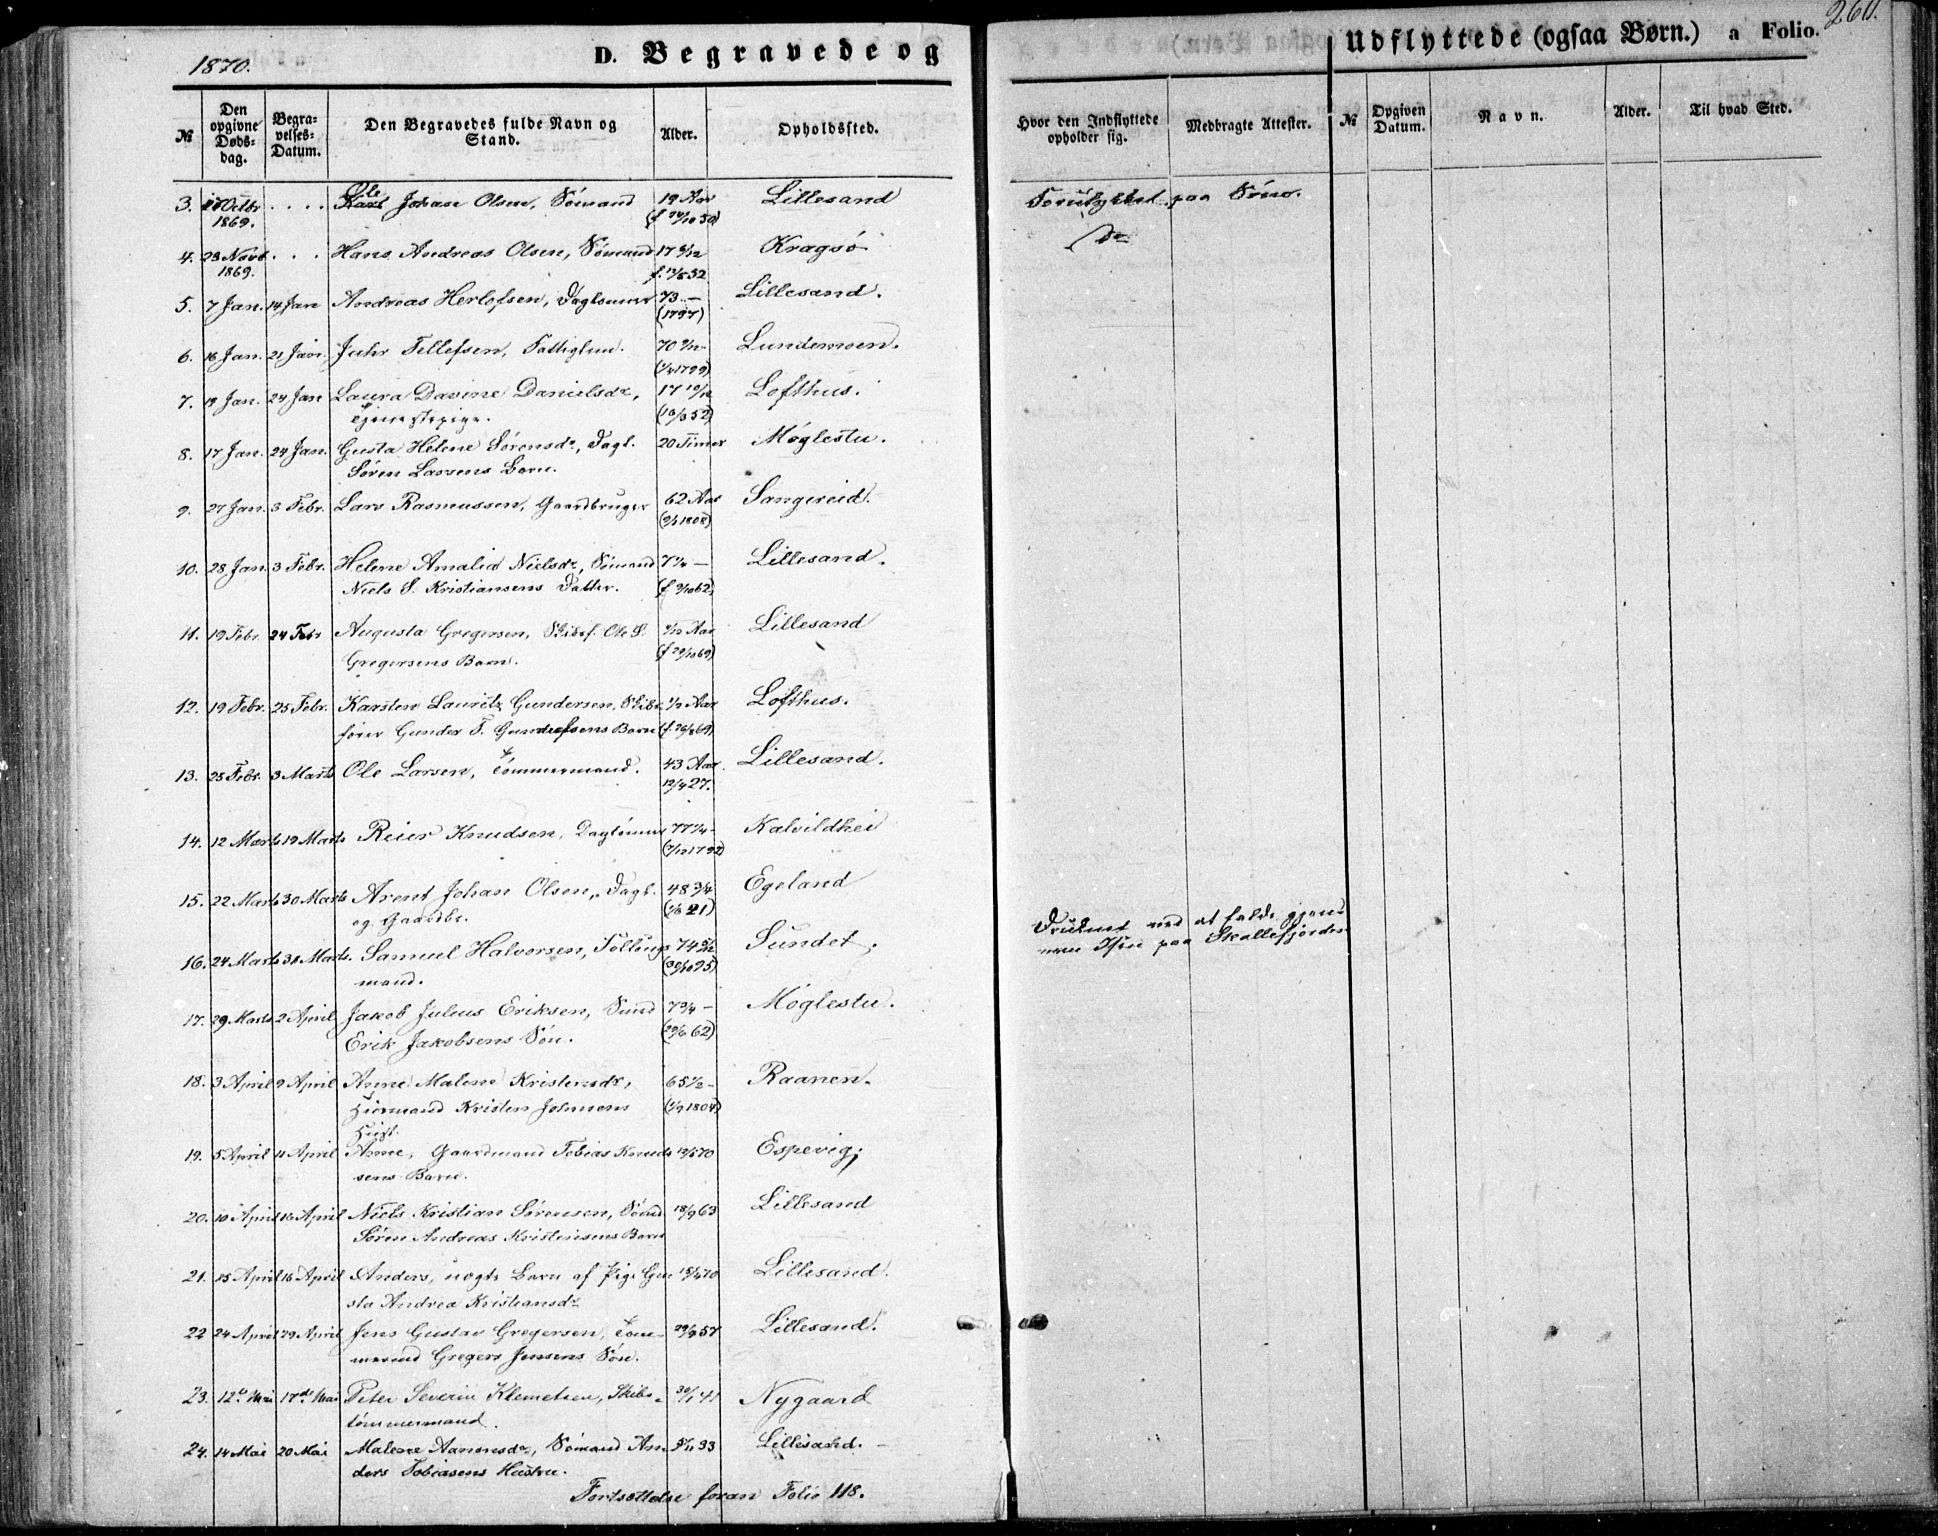 1870.
D. Begravede og
Udflyttede (ogsaa Børn.) a Folio. 260.
№ Den opgivne Dødsdag. Begravelses-Datum. Den Begravedes fulde Navn og Stand. Alder. Opholdssted. Hvor den Indflyttede opholder sig. Medbragte Attester. № Opgiven Datum. Navn. Alder. Til hvad Sted.
3. Octbr .... Ole Johan Olsen, Sømand 19 Aar Lillesand Forulykket paa Søen.
1869.
4. 23 Novb ... Hans Andreas Olsen, Sømand 17 Kragsø do
1869.
5. 7 Jan. 14 Jan Andreas Herlofsen, Daglønner 73 — Lillesand.
(1797)
6. 16 Jan. 21 Jan. Juhr Tellefsen, Fattiglem. 70 Lundemoen.
(1799)
7. 19 Jan. 24 Jan Laura Davine Danielsdr, 17 10/12 Lofthus.
Tjenestepige. (10/3 52)
8. 17 Jan. 24 Jan. Gusta Helene Sørensdr, Dagl. 20 Timer Møglestu.
Søren Larsens Barn.
9. 27 Jan. 3 Febr. Lars Rasmussen, Gaardbruger 62 Aar Sangereid.
1808)
10. 28 Jan. 3 Febr. Helene Amalia Nielsdr, Sømand 7 1/4 — Lillesand.
Niels S. Kristiansens Datter. (f 9/10 62)
11. 19 Febr. 24 Febr Augusta Gregersen, Skibsf. Ole S. Aar Lillesand
Gregersens Barn. (f 29/10 69)
12. 19 Febr. 25 Febr. Karsten Lauritz Gundersen, Skibs- 1/2 Aar Lofthus.
fører Gunder T. Gundersens Barn (f. 26/8 69)
13. 25 Febr. 3 Marts Ole Larsen, Tømmermand. 43 Aar. Lillesand.
12/4 27.
14. 12 Marts 19 Marts Reier Knudsen, Daglønner 77 1/4 - Kalvildhei
1792)
15. 22 Marts 30 Marts Arent Johan Olsen, Dagl. 48 3/4 Egeland
og Gaardbr. 21)
16. 24 Marts 30 Marts. Samuel Halvorsen, Føllings- 74 5/12 Sundet. Druknet ved at falde gjen-
mand. (30/10 95) nem Isen paa Skallefjorden
17. 29 Marts 2 April Jakob Julius Eriksen, Sømd 7 3/4 — Møglestu.
Erik Jakobsens Søn. (29/6 62)
18. 3 April 9 April Anne Malene Kristensdr, 65 1/2 - Raanen.
Huusmand Kristen Johnsens 1804)
Hust.
19. 5 April 11 April Anne, Gaardmand Tobias Knud- 70 Espevig.
sens Barn.
20. 10 April 16 April Niels Kristian Sørensen, Sømd 18/9 63 Lillesand
Søren Andreas Kristensens Barn
21. 15 April 16 April Anders, uægte Barn af Pige Gu- 15/4 70 Lillesand.
sta Andrea Kristiansdr
22 24 April 29 April Jens Gustav Gregersen, Tøm- 57 Lillesand.
mermd Gregers Jensens Søn.
23. 12te Mai 17de Mai Peter Severin Klemetsen, Skibs- 30/1 41 Nygaard
tømmermand.
24. 14 Mai 20 Mai Malene Aanonsdr, Sømand An- 5/11 33 Lillesand.
ders Tobiasens Hustru.
Fortsættelse foran Folio 118.